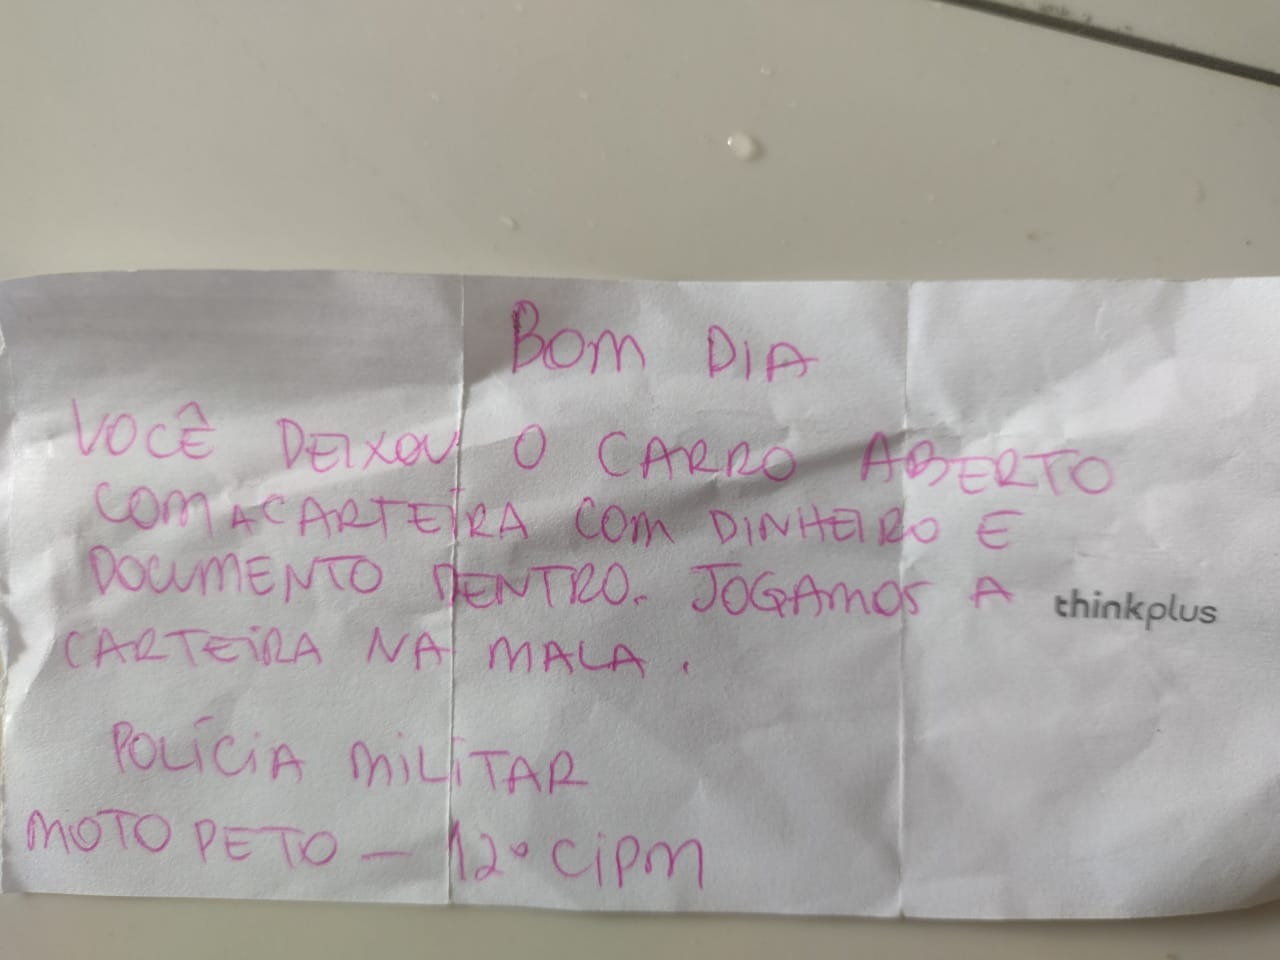 BOM DIA
VOCÊ DEIXOU O CARRO ABERTO
COM A CARTEIRA COM DINHEIRO E
DOCUMENTO DENTRO. JOGAMOS A
thinkplus
CARTEIRA NA MALA.
POLÍCIA MILITAR
MOTO PETO – 12º CIPM